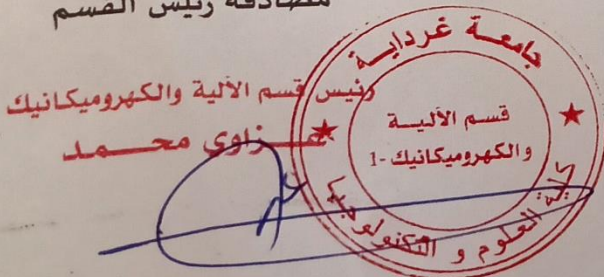 مصادقة رئيس القسم
رئيس قسم الألية والكهروميكانيك
محمد
جامعة غرداية
قسم الألية
والكهروميكانيك -1
كلية العلوم و التكنولوجيا